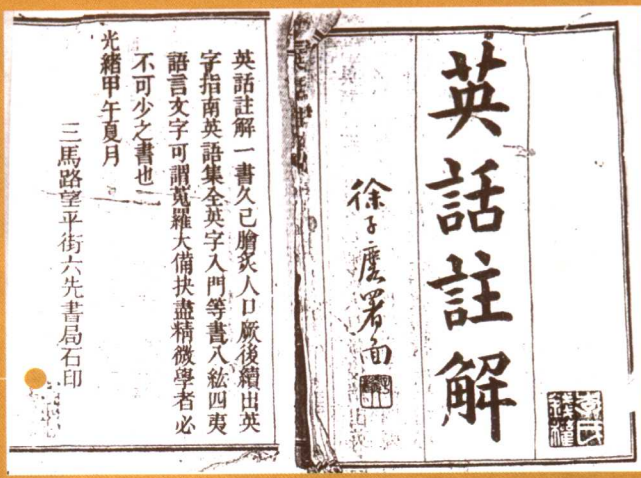 英話註解
徐子麐署面
英話註解一書久已膾炙人口厥後續出英
字指南英語集全英字入門等書八紘四夷
語言文字可謂蒐羅大備抉盡精微學者必
不可少之書也
光緒甲午夏月
三馬路望平街六先書局石印